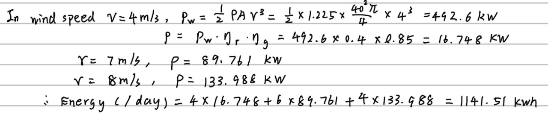 In wind speed V=4m/s, Pw = 1/2 PAV³ = 1/2 × 1.225 × 40²π/4 × 4³ = 492.6 kW
P = Pw · ηr · ηg = 492.6 × 0.4 × 0.85 = 16.748 kW
V = 7m/s, P = 89.761 kW
V = 8m/s, P = 133.988 kW
∴ Energy (/day) = 4×16.748 + 6×89.761 + 4×133.988 = 1141.51 kWh